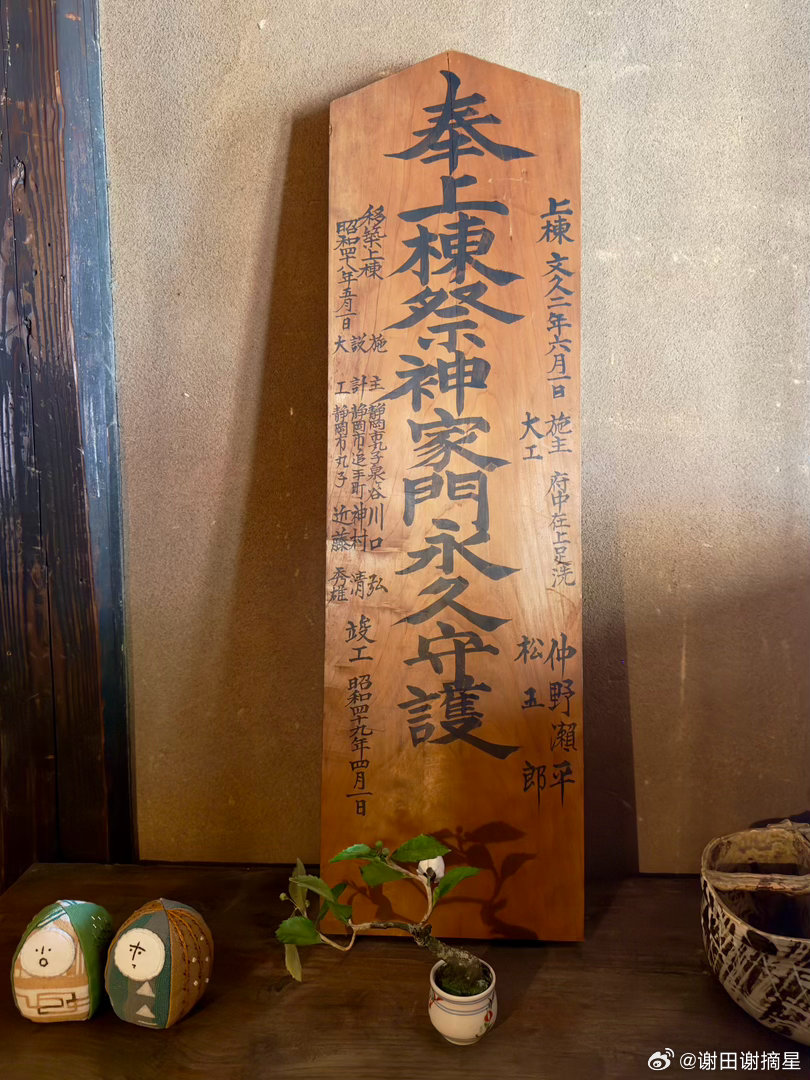 上棟 文久二年六月一日 施主 府中在上足洗 仲野瀬平
大工 松五郎
奉上棟祭神家門永久守護
移築上棟
昭和四十八年五月一日
施主 静岡市丸子泉谷 川口弘
設計 静岡市追手町 神村清
大工 静岡市丸子 近藤秀雄
竣工 昭和四十九年四月一日
@谢田谢摘星